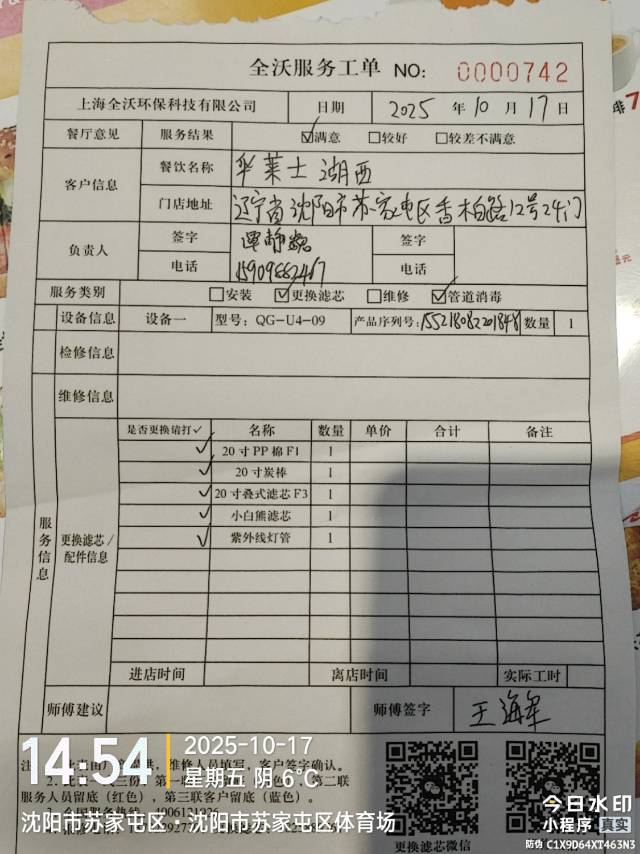 全沃服务工单 NO: 0000742
上海全沃环保科技有限公司 日期 2025 年 10 月 17 日
餐厅意见 服务结果 ☑满意 □较好 □较差不满意
客户信息 餐饮名称 华莱士 湖西
门店地址 辽宁省沈阳市苏家屯区香柏路12号24门
负责人 签字 签字
电话 电话
服务类别 □安装 ☑更换滤芯 □维修 ☑管道消毒
设备信息 设备一 型号: QG-U4-09 产品序列号: 数量 1
检修信息
维修信息
服务信息
更换滤芯/配件信息
是否更换请打✓ 名称 数量 单价 合计 备注
✓ 20寸PP棉F1 1
✓ 20寸炭棒 1
✓ 20寸叠式滤芯F3 1
✓ 小白熊滤芯 1
✓ 紫外线灯管 1
进店时间 离店时间 实际工时
师傅建议 师傅签字 王海军
维修人员填写,客户签字确认。
第二联
服务人员留底(红色),第三联客户留底(蓝色)。
更换滤芯微信
14:54 2025-10-17
星期五 阴 6°C
沈阳市苏家屯区·沈阳市苏家屯区体育场
今日水印
小程序 真实
防伪 C1X9D64XT463N3